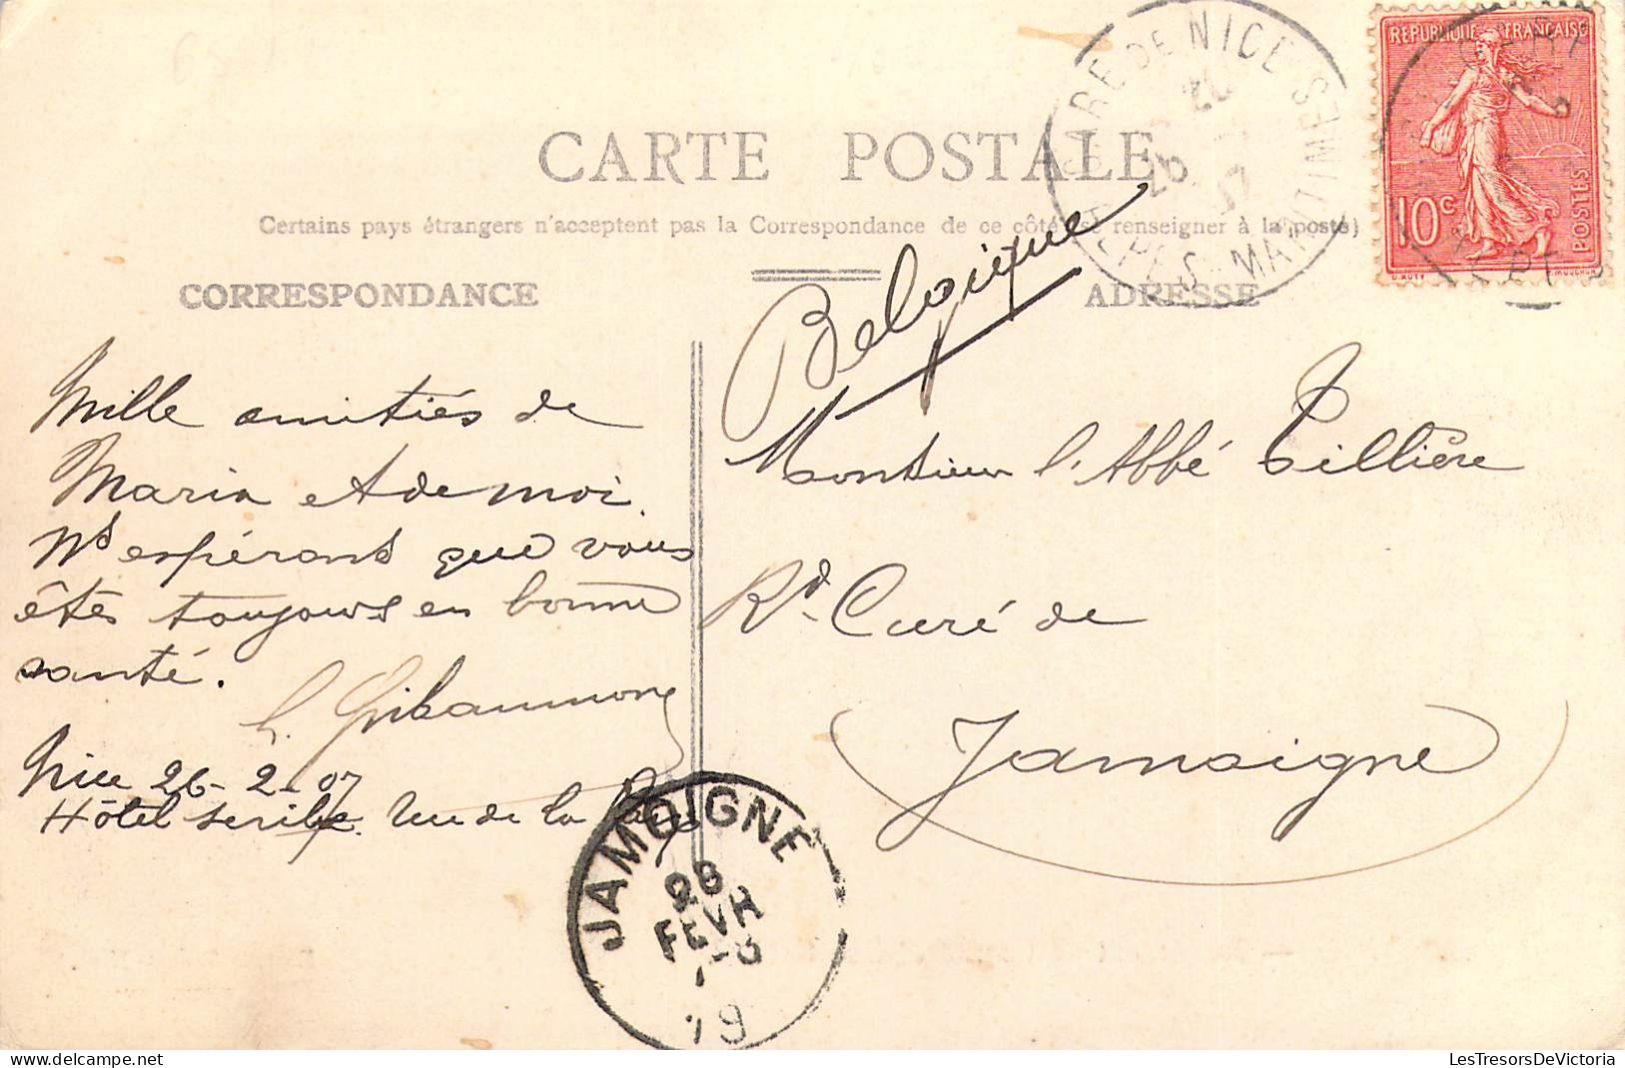 CARTE POSTALE
Certains pays étrangers n'acceptent pas la Correspondance de ce côté (se renseigner à la poste)
CORRESPONDANCE
ADRESSE
REPUBLIQUE FRANÇAISE
10c
POSTES
GARE DE NICE
ALPES MARITIMES
Belgique
Mille amitiés de
Maria et de moi.
Ns espérons que vous
êtes toujours en bonne
santé.
Nice 26-2-07
Hôtel scribe Rue de la
Monsieur l'Abbé Tillière
Rd Curé de
Jamoigne
JAMOIGNE
28
FEVR
LesTresorsDeVictoria
www.delcampe.net